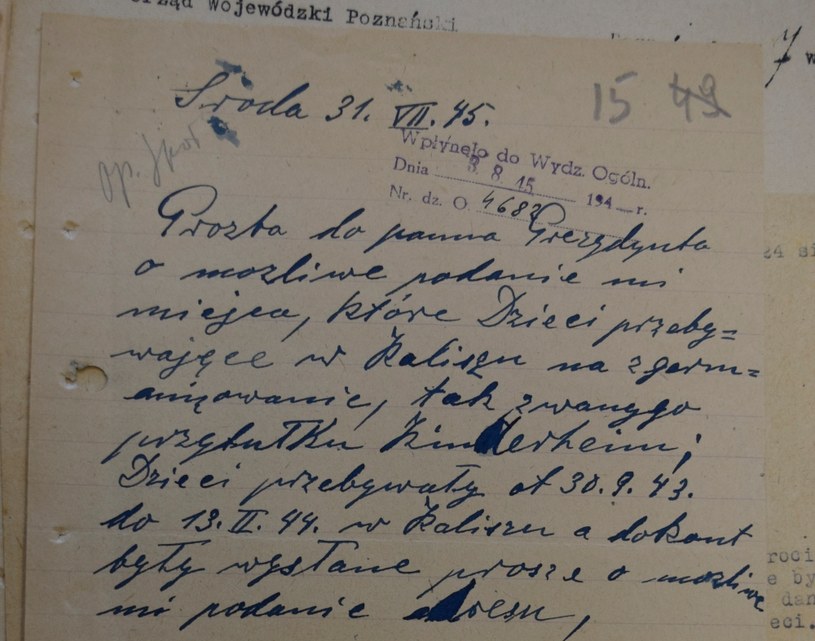 rząd Wojewódzki Poznański
15 49
Środa 31. VII. 45.
Wpłynęło do Wydz. Ogóln.
Dnia 8 8 45 194 r.
Nr. dz. O. 4682
op.
Prozba do panna Prezydynta
o mozliwe podanie mi
miejca, które Dzieci przeby=
wajęce w Kaliszu na zgerm=
anizowanie, tak zwanygo
przytułku Kinderheim;
Dzieci przebywały ot 30.9.43.
do 13.II.44. w Kaliszu a dokont
były wysłane prosze o mozliwe
mi podanie adresu,
24 si
roci
e by
dan
eci.